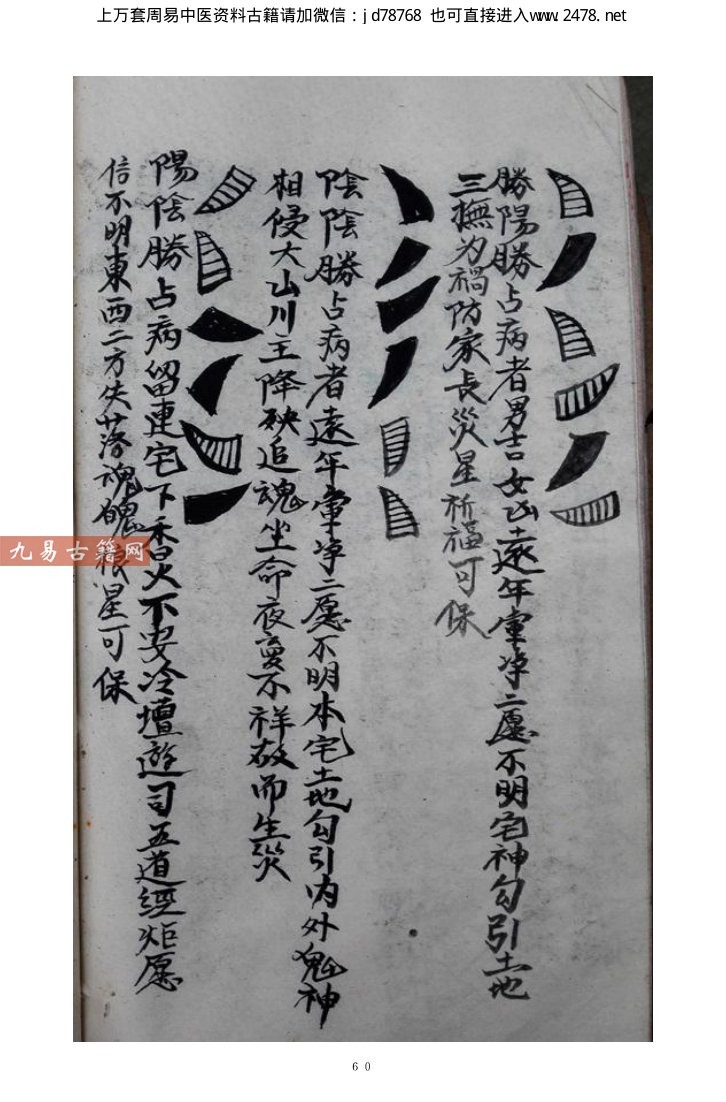 上万套周易中医资料古籍请加微信：jd78768 也可直接进入www.2478.net
勝陽勝占病者男吉女凶遠年軍淨二愿不明宅神勾引土地
三撫为禍防家長災星祈福可保
陰陰勝占病者遠年軍淨二愿不明本宅土地勾引内外鬼神
相侵大山川主降殃追魂坐命夜夢不祥故而生災
陽陰勝占病留連宅下香火不安冷壇遊司五道經炬愿
信不明東西二方失落魂魄星可保
九易古籍网
60